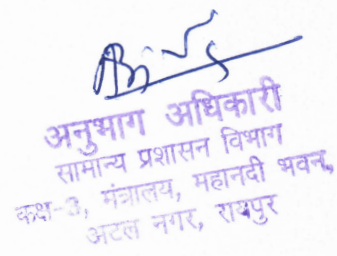 अनुभाग अधिकारी
सामान्य प्रशासन विभाग
कक्ष-3, मंत्रालय, महानदी भवन,
अटल नगर, रायपुर